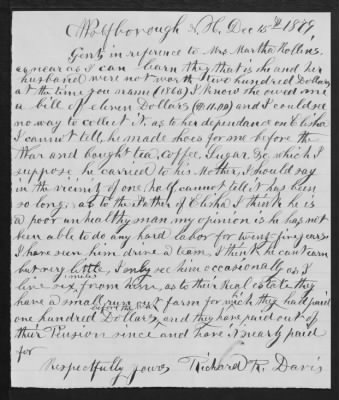 Wolfborough N.H. Dec 15th 1879,
Gents in reference to Mrs Martha Rollins.
as near as I can learn they that is she and her
husband were not worth two hundred Dollars
at the time you name (1860) I know she owed me
a bill of eleven Dollars ($11.00) and I could see
no way to collect it. as to her dependance on Elisha
I cannot tell, he made shoes for me before the
War and bought tea, coffee, Sugar &c, which I
suppose he carried to his Mother, I should say
in the vicinity of one half, cannot tell it has been
so long; as to the Father of Elisha I think he is
a poor unhealthy man, my opinion is he has not
been able to do any hard labor for twenty five years
I have seen him drive a team, I think he can earn
but very little, I only see him occasionally, as I
live six miles from him, as to their real estate they
have a small run out farm for wich they had paid
before the war
one hundred Dollars, and they have paid out of
their Pension since and have it nearly paid
for
Respectfully yours Richard R. Davis